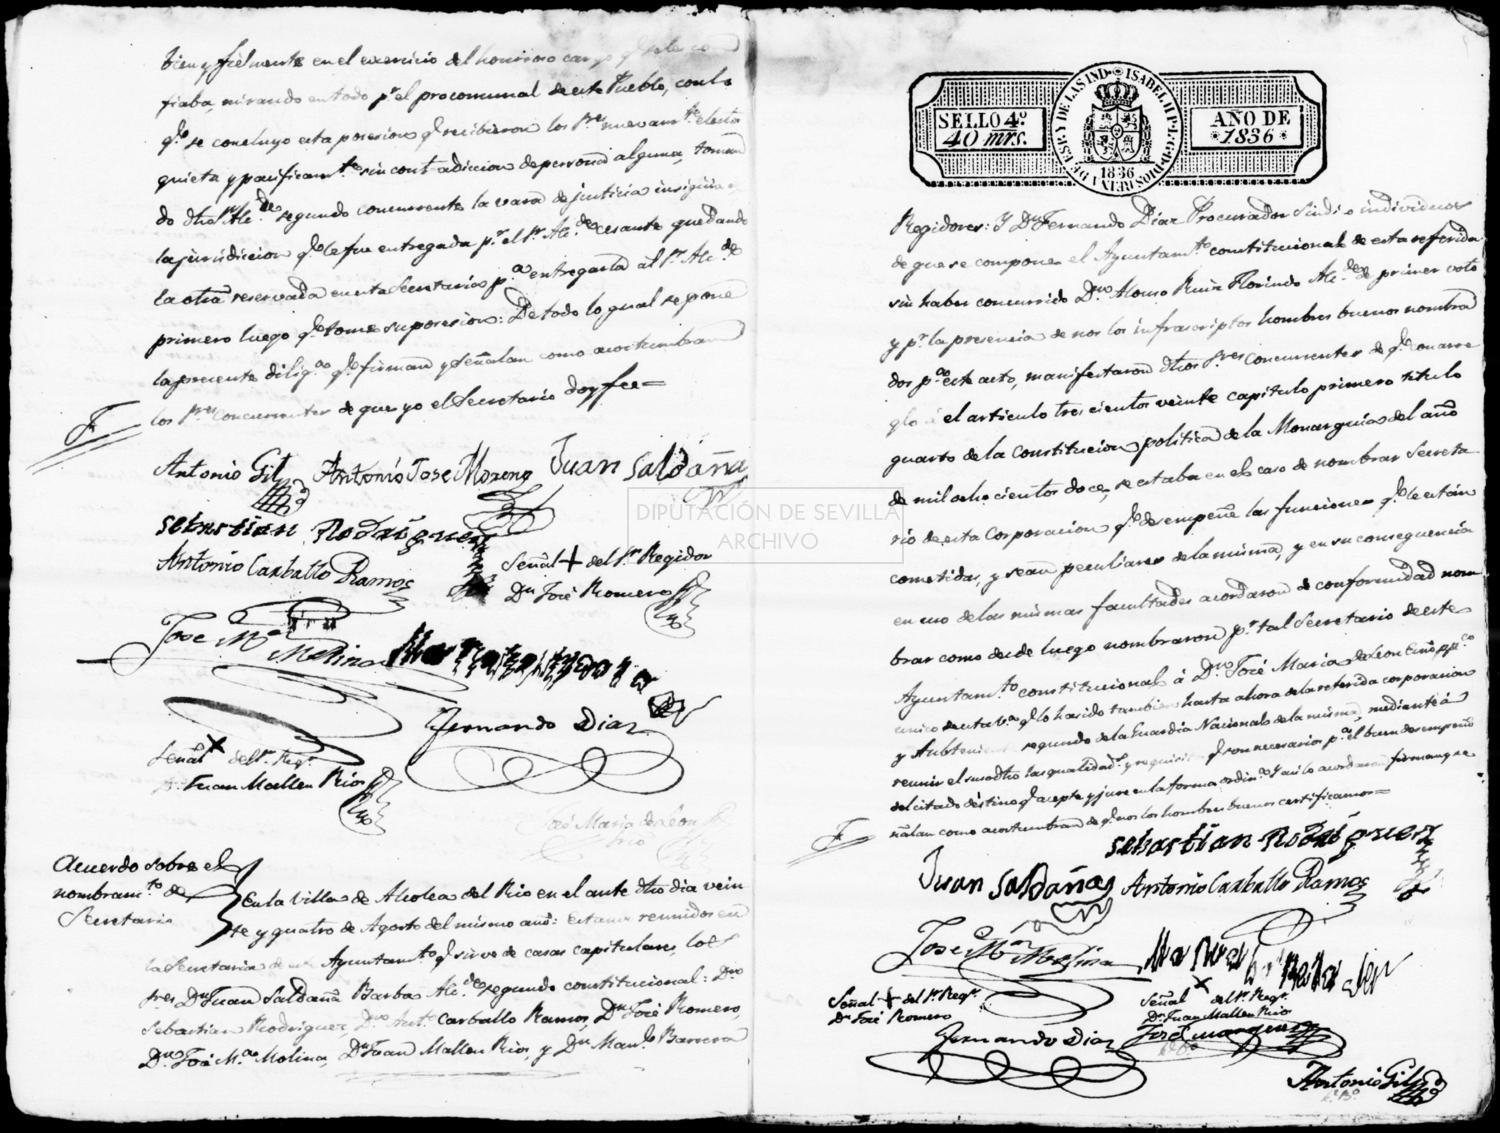 bien y fielmente en el exercicio del honrroso cargo q.e se le co
fiaba, mirando en todo p.r el procomunal de este Pueblo, con lo
q.e se concluyo esta posesion q.e recibieron los S.res nuevam.te electos
quieta y pacificam.te sin contradiccion de persona alguna, toman
do dho S.r Alc.de segundo concurrente la vara de justicia insignia
la jurisdiccion q.e le fue entregada p.r el S.r Alc.de cesante quedando
la otra reservada en esta Secretaria p.a entregarla al S.r Alc.de
primero luego q.e tome su posesion: De todo lo qual se pone
la presente dilig.a q.e firman y señalan como acostumbran
los S.res Concurrentes de que yo el Secretario doy fee=
Antonio Gil Antonio Jose Moreno Juan Saldaña
Sebastian Rodriguez
Antonio Carballo Ramos
Señal + del S.r Regidor
Dn José Romero
Jose M.a Molina
Fernando Diaz
Señal + del S.r Reg.r
Dn Juan Mallen Rios
José Maria de Leon
Acuerdo sobre el
nombram.to de
Secretario
En la Villa de Alcolea del Rio en el ante dho dia vein
te y quatro de Agosto del mismo año: estan reunidos en
la Secretaria de este Ayuntam.to q.e sirve de casas capitulares, los
S.res Dn Juan Saldaña Barba Alc.de segundo constitucional: Dn
Sebastian Rodriguez, Dn Ant.o Carballo Ramos, Dn José Romero,
Dn José M.a Molina, Dn Juan Mallen Rios, y Dn Man.l Barrera
SELLO 4º
40 mrs.
ISABEL II P.L.G. DE DIOS REINA DE ESP. Y DE LAS IND.
1836
AÑO DE
1836
Regidores: Y Dn Fernando Diaz Procurador Sindico individuos
de que se compone el Ayuntam.to constitucional de esta referida
sin haber concurrido Dn Alonso Ruiz Florindo Alc.de de primer voto
y p.r la presencia de nos los infrascriptos hombres buenos nombra
dos p.a este acto, manifestaron dhos S.res Concurrentes de q.e con arre
glo á el articulo trescientos veinte capitulo primero titulo
quarto de la Constitucion politica de la Monarquia del año
de mil ochocientos doce, se estaba en el caso de nombrar Secreta
rio de esta Corporacion q.e desempeñe las funciones q.e le están
cometidas, y sean peculiares de la misma, y en su consequencia
en uso de las mismas facultades acordaron de conformidad nom
brar como desde luego nombraron p.r tal Secretario de este
Ayuntam.to constitucional á Dn José Maria de Leon Essno pp.co
unico de esta v.a q.e lo ha sido tambien hasta ahora de la referida corporacion
y Subteniente segundo de la Guardia Nacional de la misma, mediante á
reunir el susodho las qualidad.s y requisitos q.e son necesarios p.a el buen desempeño
del citado destino q.e acepte y jure en la forma ordin.a Y asi lo acordaron firman y se
ñalan como acostumbran de q.e nos los hombres buenos certificamos=
Sebastian Rodriguez
Juan Saldaña Antonio Carballo Ramos
Jose M.a Molina
Señal + del S.r Reg.r
Dn José Romero
Señal + del S.r Reg.r
Dn Juan Mallen Rios
Fernando Diaz
Antonio Gil
h.e B.o
DIPUTACIÓN DE SEVILLA
ARCHIVO